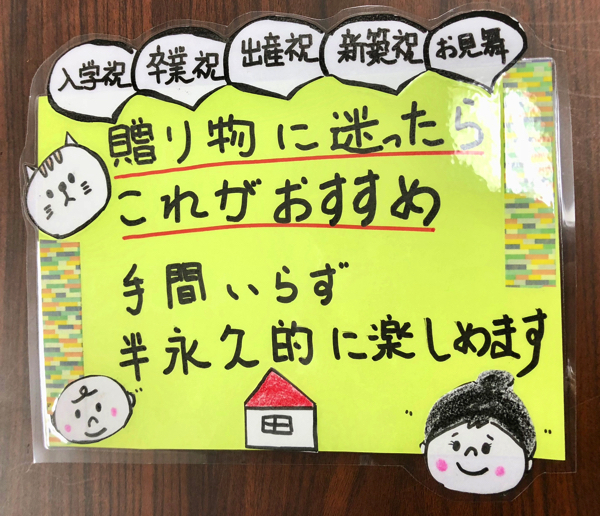 入学祝 卒業祝 出産祝 新築祝 お見舞
贈り物に迷ったら
これがおすすめ
手間いらず
半永久的に楽しめます